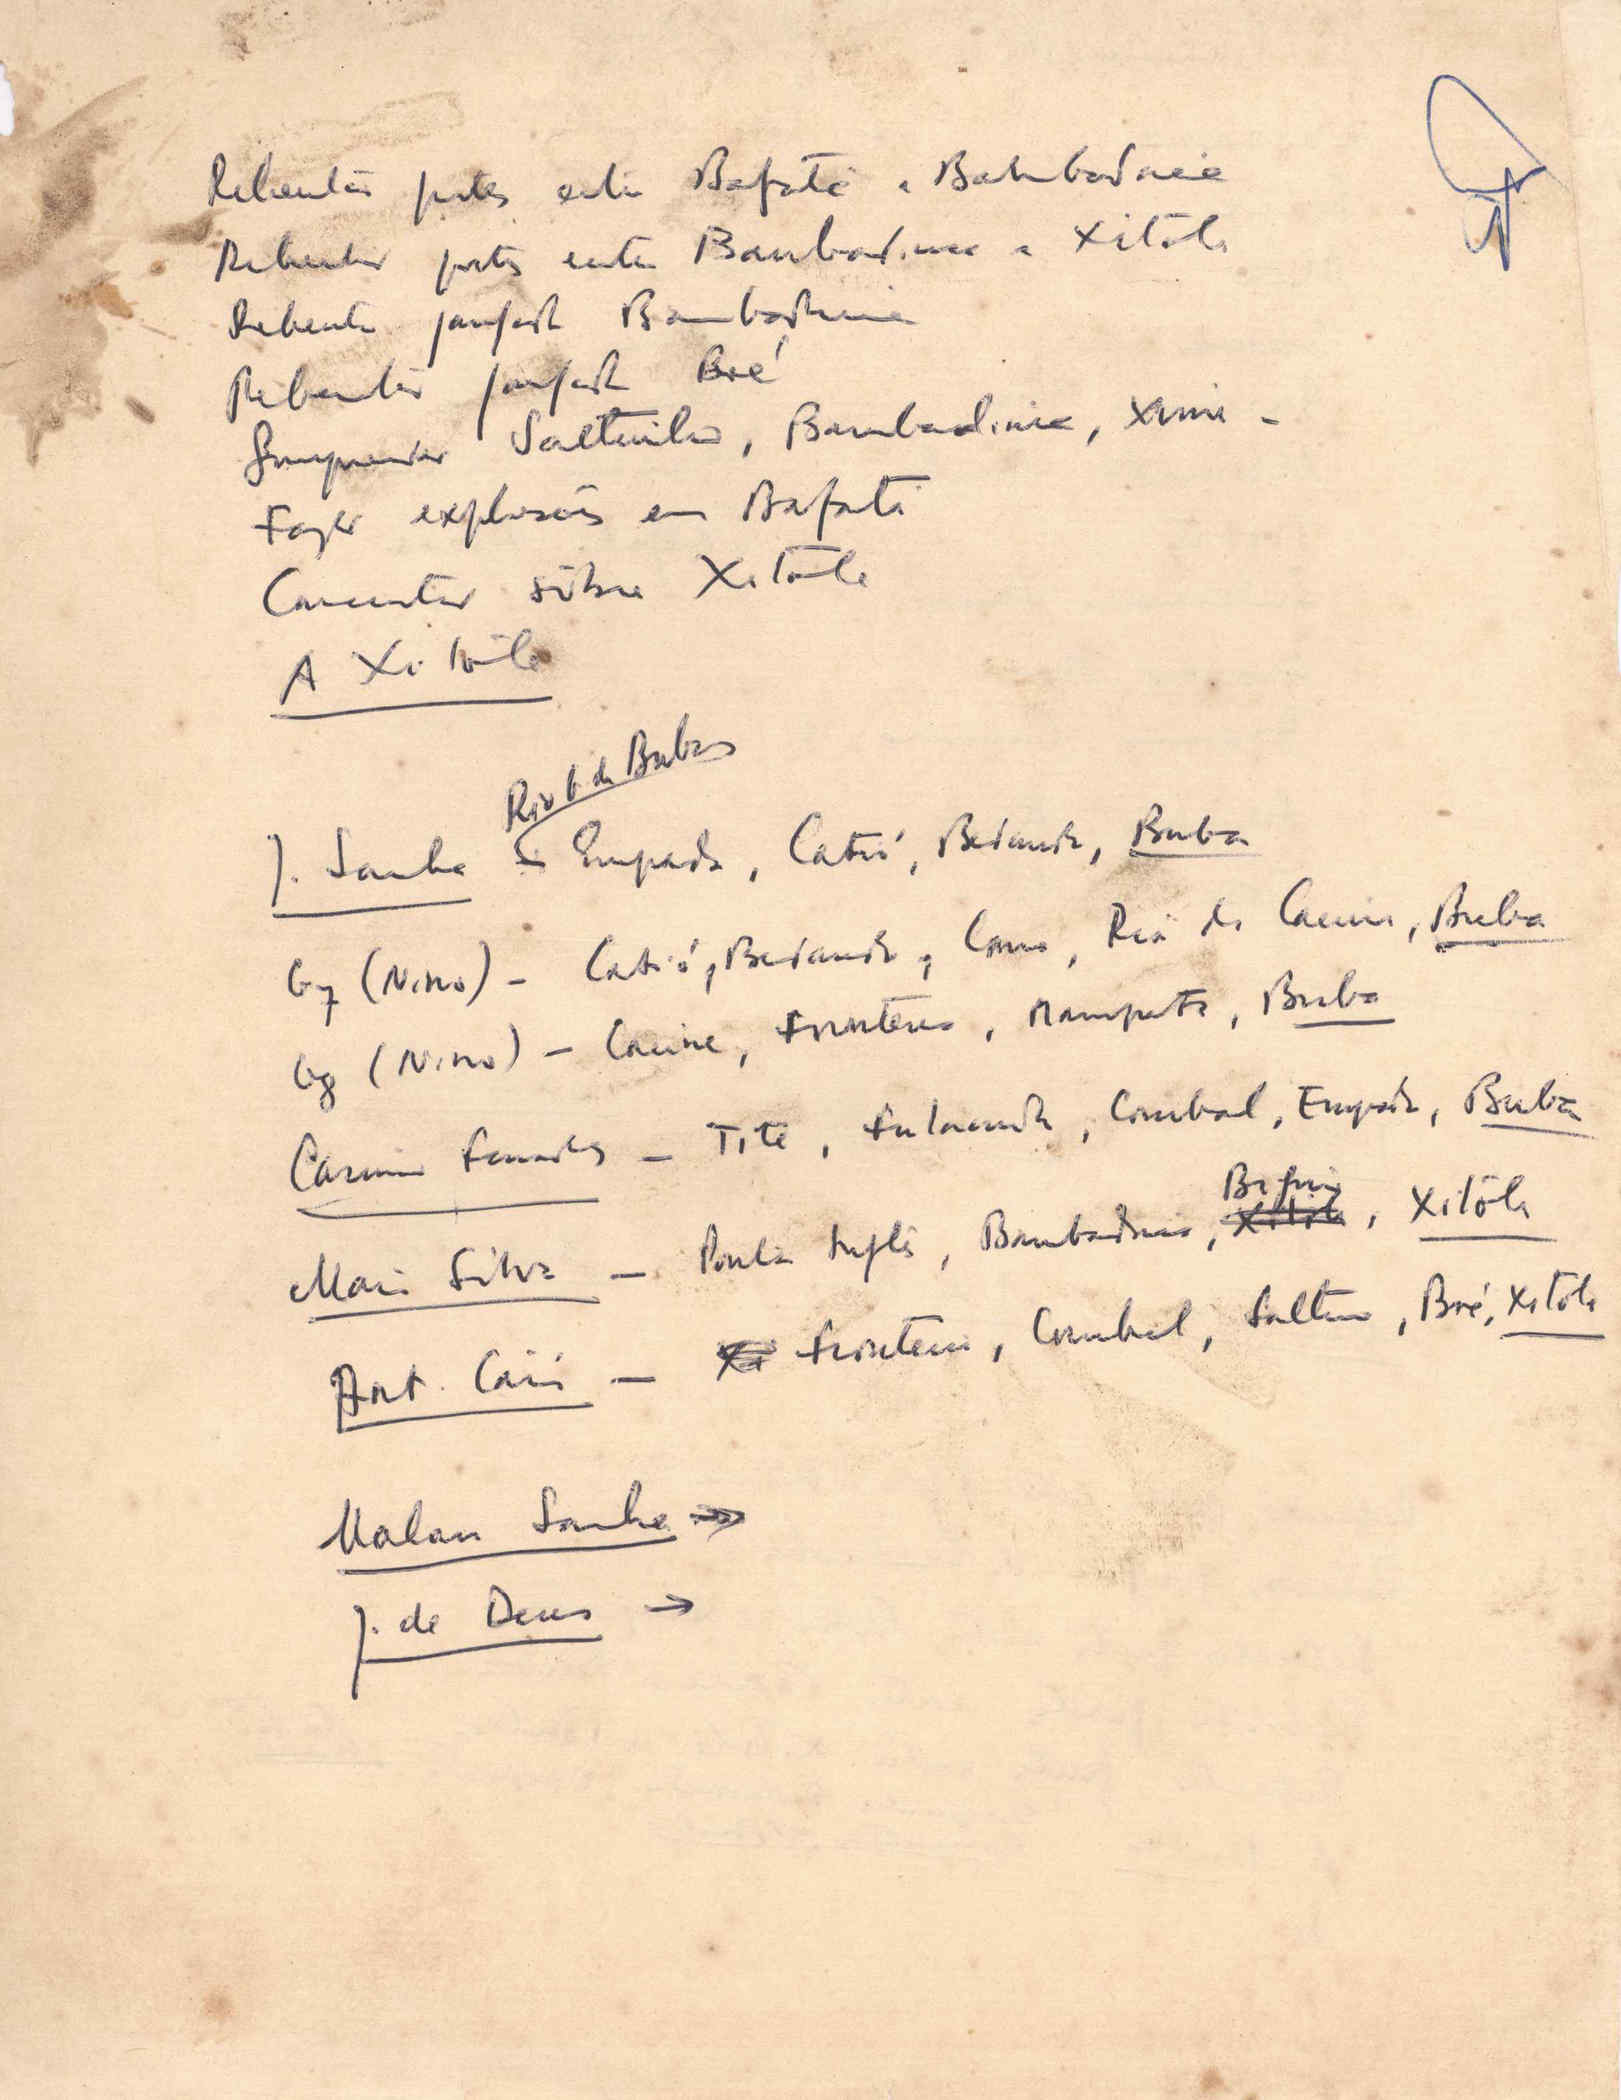 Rebentar pontes entre Bafatá e Bambadinca
Rebentar pontes entre Bambadinca e Xitóle
Rebentar jangada Bambadinca
Rebentar jangada Boé
Saltinho, Bambadinca, Xime -
Fazer explosões em Bafatá
Concentrar sôbre Xitóle
A Xitóle
Rio G. de Buba
J. Sanha Empada, Catió, Bedanda, Buba
G7 (Nino) - Catió, Bedanda, Como, Rio de Cacine, Buba
G8 (Nino) - Cacine, fronteira, Mampatá, Buba
Carmo - Tite, Fulacunda, Corubal, Empada, Buba
Mário Silva - Ponta Inglês, Bambadinca, Xitóle, Xitóle
Ant. - fronteira, Corubal, Saltinho, Boé, Xitóle
Malan Sanha →
J. de Deus →